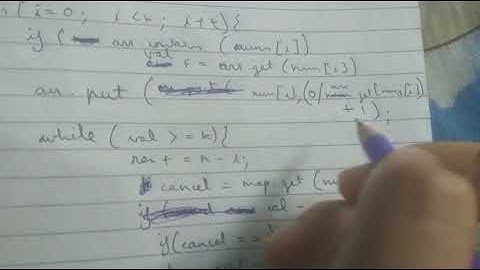 ( i = 0 ; i < n ; i++ ) {
if ( arr contains ( nums [i] )
val = arr . get ( num [i] )
arr . put ( num [i] , ( 0 / arr . get ( nums [i] )
+ 1 ) ;
while ( val > = k ) {
res + = n - i ;
cancel = map . get (
val -
if ( cancel = =